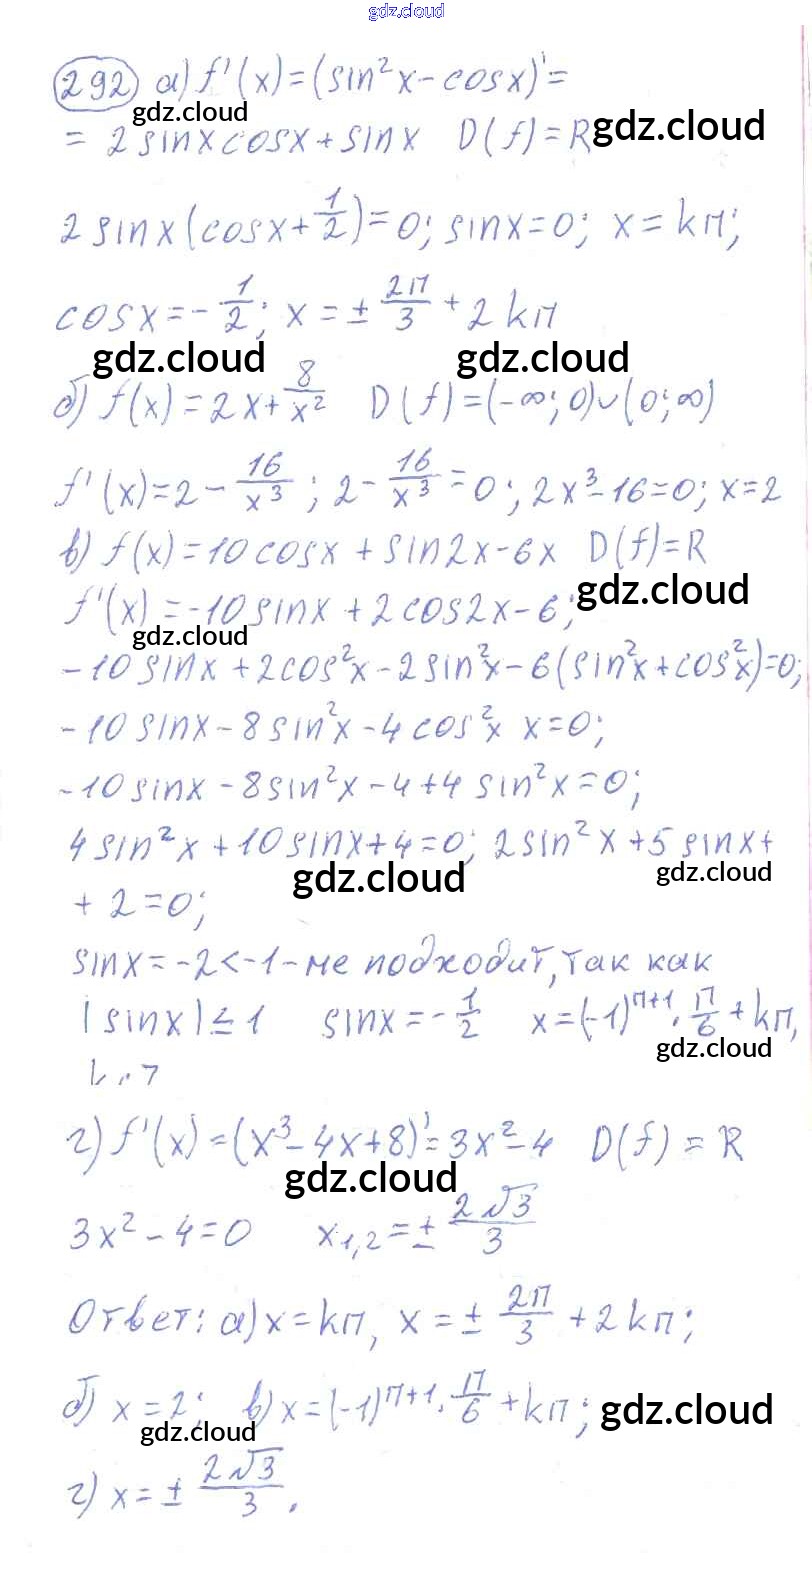 gdz.cloud
292 а) f'(x)=(sin²x-cosx)'=
gdz.cloud
= 2 sinxcosx+sinx D(f)=R
gdz.cloud
2 sinx(cosx+1/2)=0; sinx=0; x=kπ;
cosx=-1/2; x=±2π/3+2kπ
gdz.cloud gdz.cloud
б) f(x)=2x+8/x² D(f)=(-∞;0)∪(0;∞)
f'(x)=2-16/x³; 2-16/x³=0; 2x³-16=0; x=2
в) f(x)=10cosx+sin2x-6x D(f)=R
gdz.cloud
f'(x)=-10sinx+2cos2x-6;
gdz.cloud
-10sinx+2cos²x-2sin²x-6(sin²x+cos²x)=0;
-10sinx-8sin²x-4cos²x x=0;
-10sinx-8sin²x-4+4sin²x=0;
4sin²x+10sinx+4=0; 2sin²x+5sinx+
gdz.cloud gdz.cloud
+2=0;
sinx=-2<-1-не подходит, так как
|sinx|≤1 sinx=-1/2 x=(-1)ⁿ⁺¹·π/6+kπ,
gdz.cloud
г) f'(x)=(x³-4x+8)'=3x²-4 D(f)=R
gdz.cloud
3x²-4=0 x₁,₂=±2√3/3
Ответ: а) x=kπ, x=±2π/3+2kπ;
б) x=2; в) x=(-1)ⁿ⁺¹·π/6+kπ;
gdz.cloud gdz.cloud
г) x=±2√3/3.